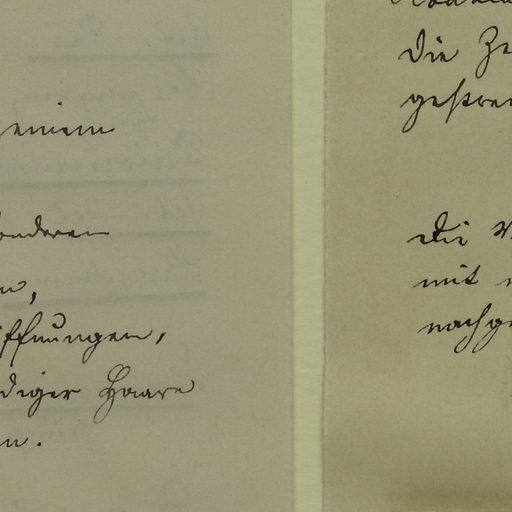 einem
anderen
n,
öffnungen,
diger Haare
n.
Die Ze
gestre
Die
mit
nachge